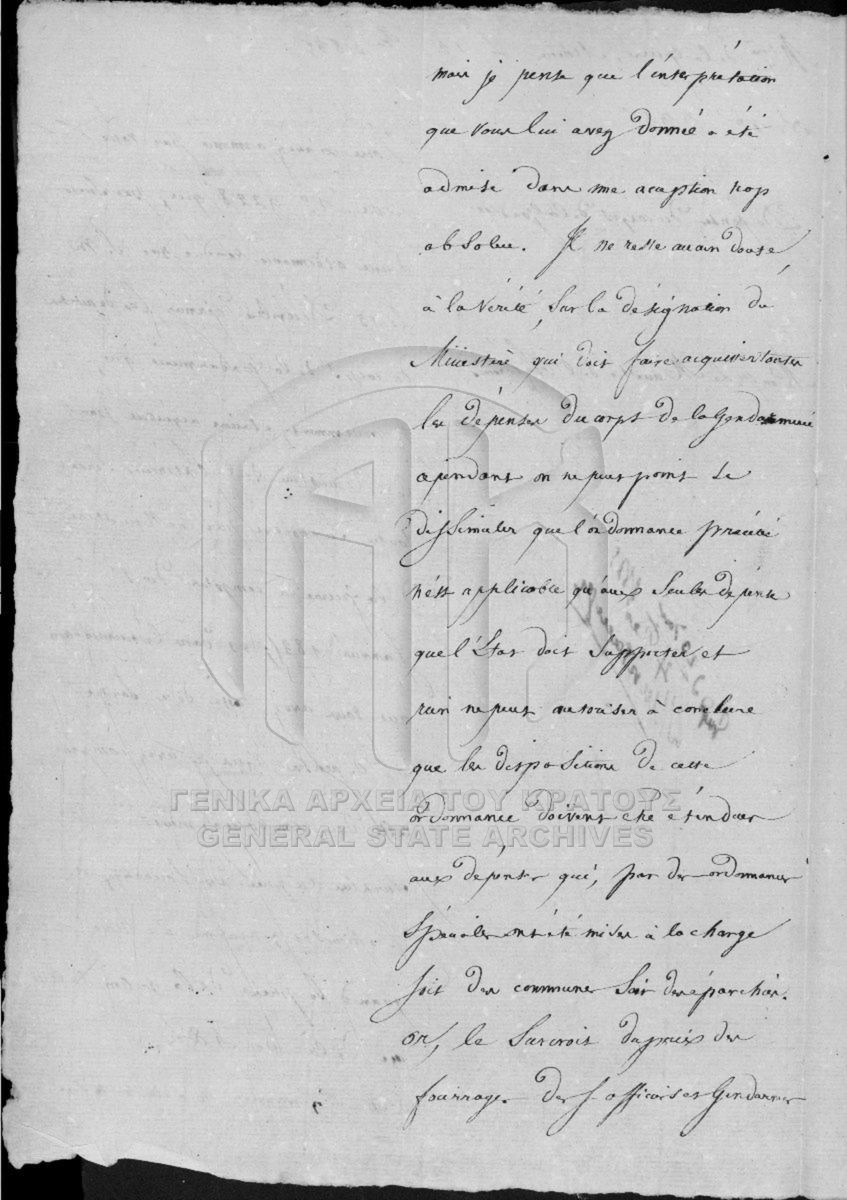 mais je pense que l'interprétation
que vous lui avez donnée a été
admise dans une aception trop
absolue. Il ne reste aucun doute,
à la Vérité, sur la désignation du
Ministère qui doit faire acquitter toutes
les dépenses du corps de la Gendarmerie
cependant on ne peut point se
dissimuler que l'ordonnance précité
n'est applicable qu'aux seules dépense
que l'Etat doit supporter et
rien ne peut autoriser à conclure
que les dispositions de cette
ordonnance doivent être étendues
aux dépenses qui, par des ordonnances
spéciales ont été mises à la charge
soit des communes soit des éparchies.
or, le surcroit du prix des
fourrages des s. officiers et Gendarmes
ΓΕΝΙΚΑ ΑΡΧΕΙΑ ΤΟΥ ΚΡΑΤΟΥΣ
GENERAL STATE ARCHIVES